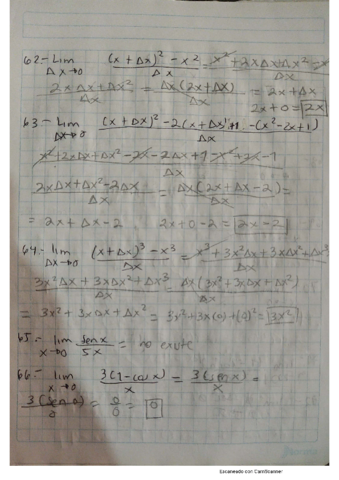 62.- Lim Δx→0 (x + Δx)² - x² / Δx = x² + 2xΔx + Δx² - x² / Δx
2xΔx + Δx² / Δx = Δx(2x + Δx) / Δx = 2x + Δx
2x + 0 = 2x
63.- Lim Δx→0 (x + Δx)² - 2(x + Δx) + 1 - (x² - 2x + 1) / Δx
x² + 2xΔx + Δx² - 2x - 2Δx + 1 - x² + 2x - 1 / Δx
2xΔx + Δx² - 2Δx / Δx = Δx(2x + Δx - 2) / Δx =
= 2x + Δx - 2 2x + 0 - 2 = 2x - 2
64.- lim Δx→0 (x + Δx)³ - x³ / Δx = x³ + 3x²Δx + 3xΔx² + Δx³ / Δx
3x²Δx + 3xΔx² + Δx³ / Δx = Δx(3x² + 3xΔx + Δx²) / Δx
= 3x² + 3xΔx + Δx² = 3x² + 3x(0) + (0)² = 3x²
65.- lim x→0 sen x / 5x = no existe
66.- lim x→0 3(1 - cos x) / x = 3( x) / x =
3( 0) / 0 = 0 / 0 = 0
Escaneado con CamScanner